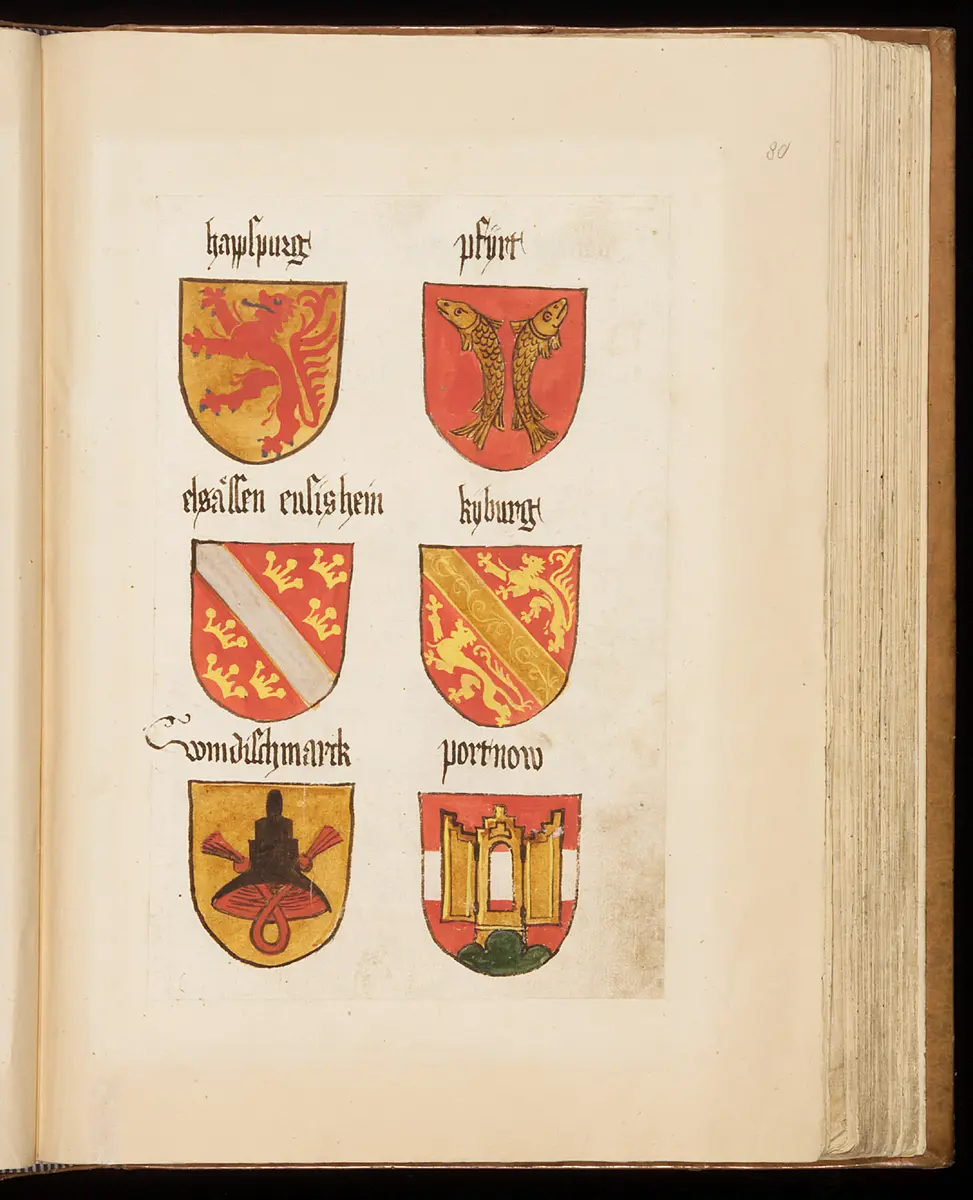 80
hapspurg
pfyrt
elsässen ensishein
kyburg
windischmarck
portnow